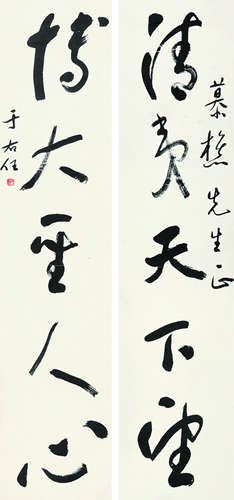 慕樵先生正
清夷天下望
博大圣人心
于右任